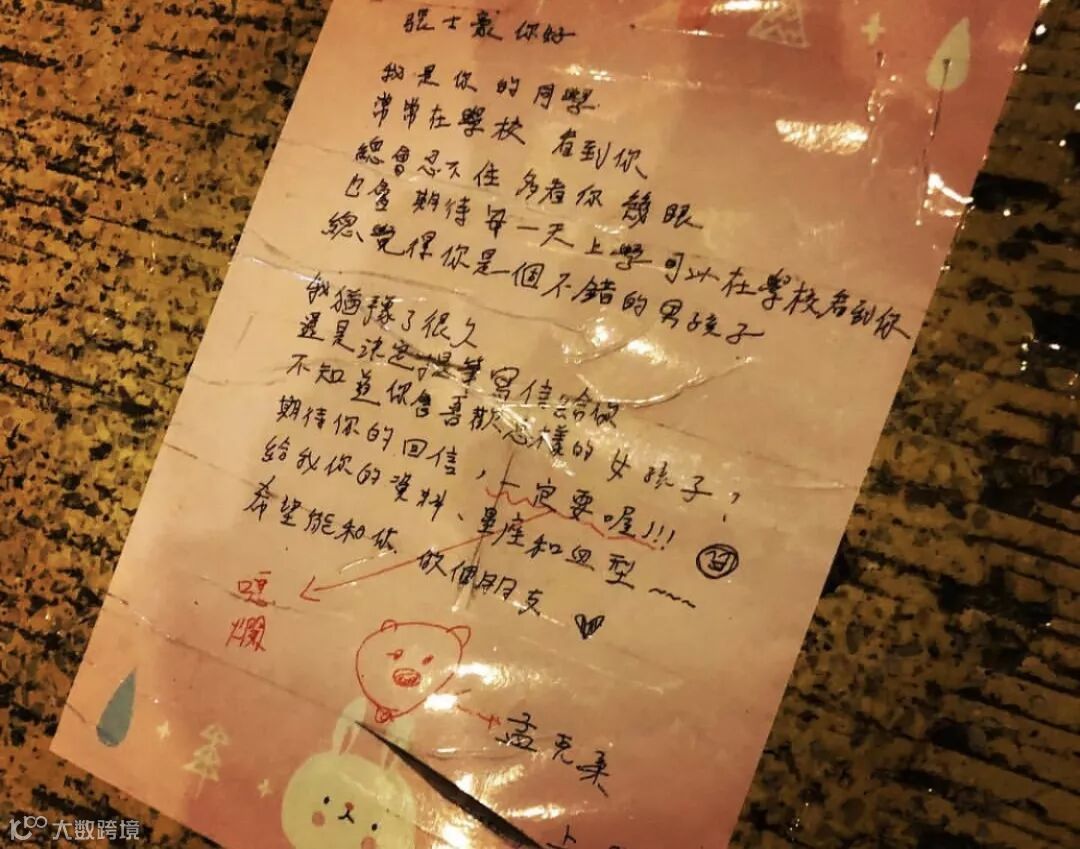 張士豪你好
我是你的同學
常常在學校 看到你
總會忍不住 多看你 幾眼
也會 期待每一天上學可以在學校看到你
總覺得你是個不錯的男孩子
我猶豫了很久
還是決定提筆寫信給你
不知道你會喜歡怎樣的女孩子,
期待你的回信,一定要喔!!!
給我你的資料、星座和血型~~~~
希望能和你 做個朋友
噁爛
孟克柔
大数跨境